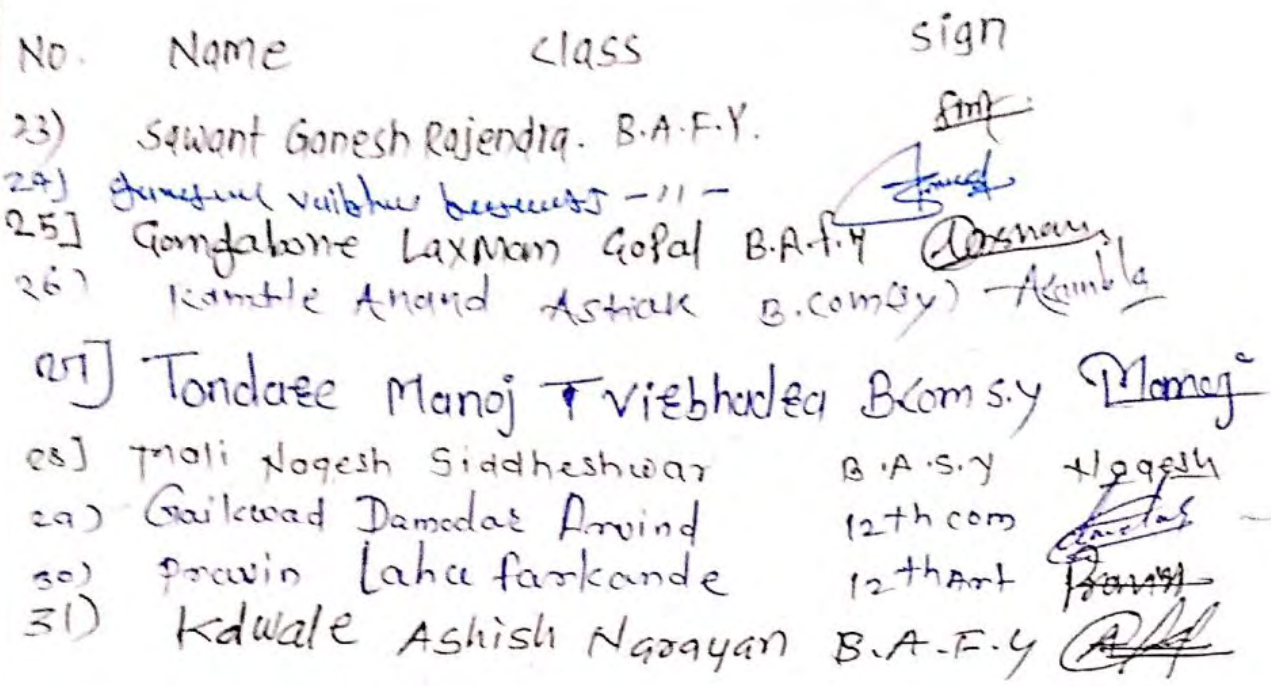 No. Name class sign
23) Sawant Ganesh Rajendra. B.A.F.Y.
24] vaibhav -11-
25] Gomdabone Laxman Gopal B.A.f.y
26) Kamble Anand Astiak B.com(sy) AKamble
27] Tondare Manoj Virbhadra B.com s.y Manoj
28] Mali Nogesh Siddheshwar B.A.S.y Nogesh
29) Gaikwad Damodar Arvind 12th com
30) Pravin Lahu farkande 12th Art Pravin
31) Kdwale Ashish Narayan B.A.F.y